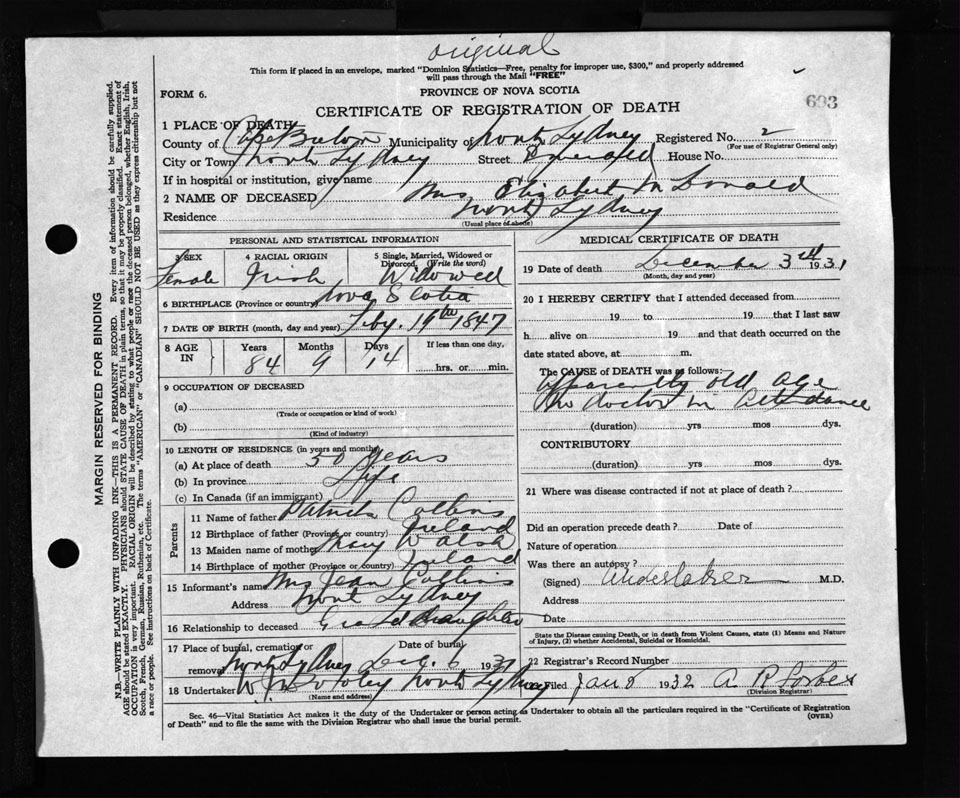 original
This form if placed in an envelope, marked "Dominion Statistics—Free, penalty for improper use, $300," and properly addressed
will pass through the Mail "FREE"
FORM 6.
PROVINCE OF NOVA SCOTIA
693
CERTIFICATE OF REGISTRATION OF DEATH
1 PLACE OF DEATH
County of Cape Breton Municipality of North Sydney Registered No. 2
(For use of Registrar General only)
City or Town North Sydney Street House No.
If in hospital or institution, give name
2 NAME OF DECEASED Mrs Elizabeth McDonald
Residence North Sydney
(Usual place of abode)
PERSONAL AND STATISTICAL INFORMATION
3 SEX 4 RACIAL ORIGIN 5 Single, Married, Widowed or
Divorced. (Write the word)
Female Irish Widowed
6 BIRTHPLACE (Province or country) Nova Scotia
7 DATE OF BIRTH (month, day and year) Feby. 19th 1847
8 AGE IN Years Months Days If less than one day,
84 9 14 hrs. or min.
9 OCCUPATION OF DECEASED
(a)
(Trade or occupation or kind of work)
(b)
(Kind of industry)
10 LENGTH OF RESIDENCE (in years and months)
(a) At place of death 50 years
(b) In province Life
(c) In Canada (if an immigrant)
Parents
11 Name of father Patrick Collins
12 Birthplace of father (Province or country) Ireland
13 Maiden name of mother Mary Walsh
14 Birthplace of mother (Province or country) Ireland
15 Informant's name Mrs Jean Collins
Address North Sydney
16 Relationship to deceased
17 Place of burial, cremation or removal North Sydney Date of burial Dec. 6 1931
18 Undertaker Foley North Sydney
(Name and address)
MEDICAL CERTIFICATE OF DEATH
19 Date of death December 3rd 1931
(Month, day and year)
20 I HEREBY CERTIFY that I attended deceased from
19 to 19 that I last saw
h alive on 19 and that death occurred on the
date stated above, at m.
The CAUSE of DEATH was as follows:
apparently old age
no doctor in attendance
(duration) yrs mos dys.
CONTRIBUTORY
(duration) yrs mos dys.
21 Where was disease contracted if not at place of death?
Did an operation precede death? Date of
Nature of operation
Was there an autopsy?
(Signed) Undertaker M.D.
Address
Date
State the Disease causing Death, or in death from Violent Causes, state (1) Means and Nature
of Injury, (2) whether Accidental, Suicidal or Homicidal.
22 Registrar's Record Number
Filed Jan 8 1932 A R Forbes
(Division Registrar)
Sec. 46—Vital Statistics Act makes it the duty of the Undertaker or person acting as Undertaker to obtain all the particulars required in the "Certificate of Registration
of Death" and to file the same with the Division Registrar who shall issue the burial permit.
(OVER)
MARGIN RESERVED FOR BINDING
N.B.—WRITE PLAINLY WITH UNFADING INK—THIS IS A PERMANENT RECORD. Every item of information should be carefully supplied.
AGE should be stated EXACTLY. PHYSICIANS should STATE CAUSE OF DEATH in plain terms, so that it may be properly classified. Exact statement of
OCCUPATION is very important. RACIAL ORIGIN will be described by stating to what people or race the deceased person belonged, whether English, Irish,
Scotch, French, German, Russian, Ruthenian, etc. The terms "AMERICAN" or "CANADIAN" SHOULD NOT BE USED as they express citizenship but not
a race or people. See instructions on back of Certificate.